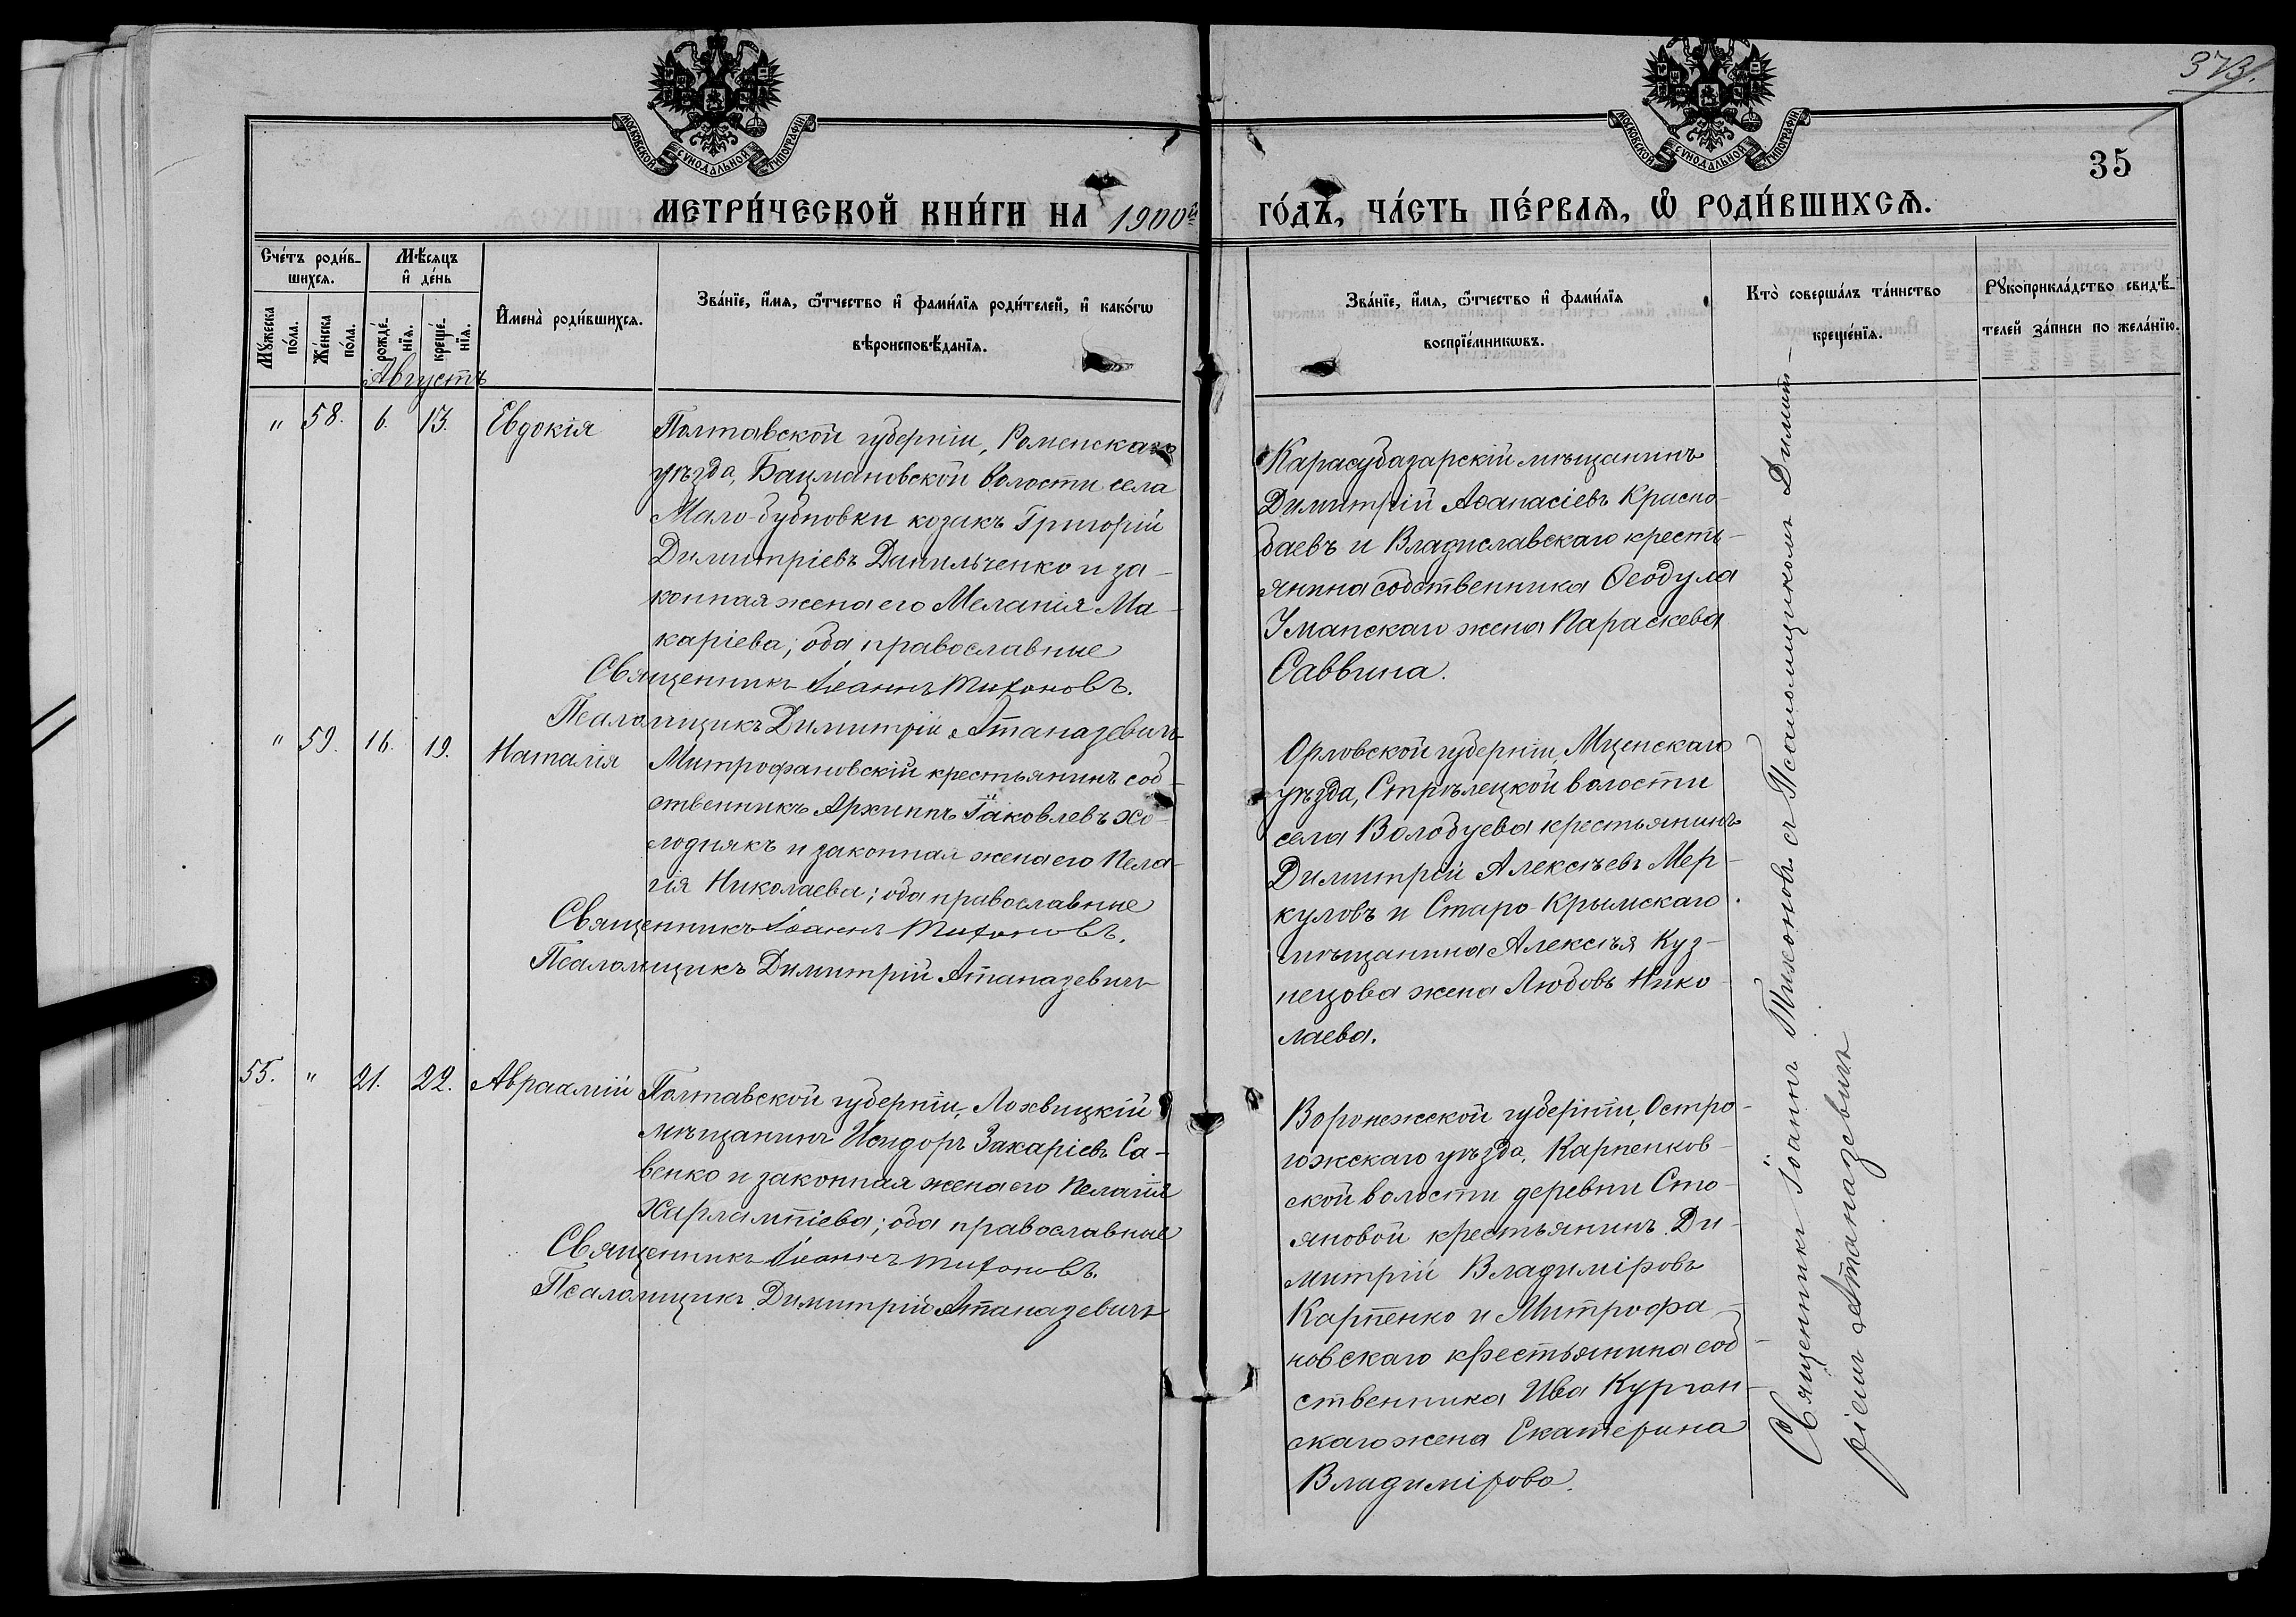 373.
МОСКОВСКОЙ СѴНОДАЛЬНОЙ ТИПОГРАФІИ
МОСКОВСКОЙ СѴНОДАЛЬНОЙ ТИПОГРАФІИ
35
МЕТРИ́ЧЕСКОЙ КНИ́ГИ НА 1900й
ГО́ДЪ, ЧА́СТЬ ПЕ́РВАѦ, Ѡ҆ РОДИ́ВШИХСѦ.
Сче́тъ роди́в-
шихсѧ.
Мꙋжеска по́ла.
Же́нска по́ла.
Мѣ́сяцъ
и҆ де́нь
рожде́-
нїѧ.
креще́-
нїѧ.
Августъ
И҆мена̀ роди́вшихсѧ.
Зва́нїе, и҆́мѧ, ѻ҆́тчество и҆ фами́лїѧ роди́телей, и҆ како́гѡ
вѣроисповѣ́данїѧ.
Зва́нїе, и҆́мѧ, ѻ҆́тчество и҆ фами́лїѧ
воспрїе́мникѡвъ.
Кто̀ соверша́лъ та́инство
креще́нїѧ.
Рꙋкоприкла́дство свидѣ́-
телей за́писи по жела́нїю.
" 58. 6. 13. Евдокія
Полтавской губерніи, Роменскаго
уѣзда, Бацмановской волости села
Мало-бубновки козакъ Григорій
Димитріевъ Данильченко и за-
конная жена его Меланія Ма-
каріева; оба православные
Священникъ Іоаннъ Тихоновъ.
Псаломщикъ Димитрій Атаназевичъ
Карасубазарскій мѣщанинъ
Димитрій Аѳанасіевъ Красно-
баевъ и Владиславскаго кресть-
янина собственника Ѳеодула
Уманскаго жена Параскева
Саввина.
" 59. 16. 19. Наталія
Митрофановскій крестьянинъ соб-
ственникъ Архипъ Іаковлевъ Хо-
лоднякъ и законная жена его Пела-
гія Николаева; оба православные
Священникъ Іоаннъ Тихоновъ.
Псаломщикъ Димитрій Атаназевичъ
Орловской губерніи, Мценскаго
уѣзда, Стрѣлецкой волости
села Волобуева крестьянинъ
Димитрій Алексѣевъ Мер-
куловъ и Старо-Крымскаго
мѣщанина Алексѣя Куз-
нецова жена Любовь Нико-
лаева.
55. " 21. 22. Авраамій
Полтавской губерніи, Лохвицкій
мѣщанинъ Исидоръ Захаріевъ Са-
венко и законная жена его Пелагія
Харлампіева; оба православные
Священникъ Іоаннъ Тихоновъ.
Псаломщикъ Димитрій Атаназевичъ
Воронежской губерніи, Остро-
гожскаго уѣзда, Карпенков-
ской волости деревни Сто-
яновой крестьянинъ Ди-
митрій Владиміровъ
Карпенко и Митрофа-
новскаго крестьянина соб-
ственника Ива Курган-
скаго жена Екатерина
Владимірова.
Священникъ Іоаннъ Тихоновъ съ Псаломщикомъ Димит-
ріемъ Атаназевичъ